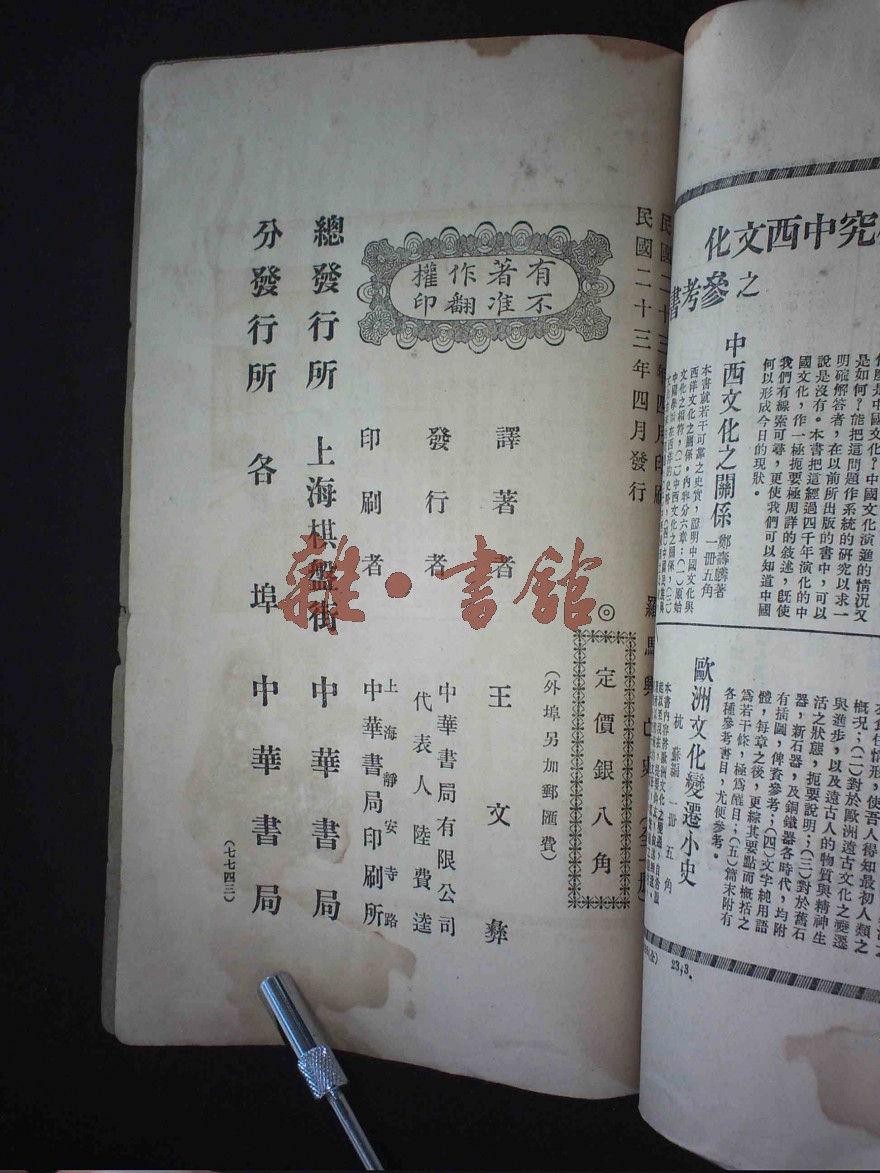 究中西文化
之參考書
中西文化之關係
鄭壽麟著
一冊五角
本書就若干可靠之史實，證明中國文化與
是如何？能把這問題作系統的研究以求一
明確解答者，在以前所出版的書中，可以
說是沒有。本書把這經過四千年演化的中
國文化，作一極扼要極周詳的敘述，旣使
我們有線索可尋，更使我們可以知道中國
何以形成今日的現狀。
歐洲文化變遷小史
杭蘇編
一冊
五角
概況；（二）對於歐洲遠古文化之變遷
與進步，以及遠古人的物質與精神生
活之狀態，扼要說明；（三）對於舊石
器，新石器，及銅鐵器各時代，均附
有插圖，俾資參考；（四）文字純用語
體，每章之後，更綜其要點而概括之
爲若干條，極爲醒目；（五）篇末附有
各種參考書目，尤便參考。
民國二十三年四月印刷
民國二十三年四月發行
羅馬興亡史
◎
定價銀八角
（外埠另加郵匯費）
有著作權
不准翻印
譯著者 王文彝
發行者 中華書局有限公司
代表人陸費逵
印刷者 上海靜安寺路
中華書局印刷所
總發行所 上海棋盤街 中華書局
分發行所 各埠 中華書局
（七七四三）
雜·書館